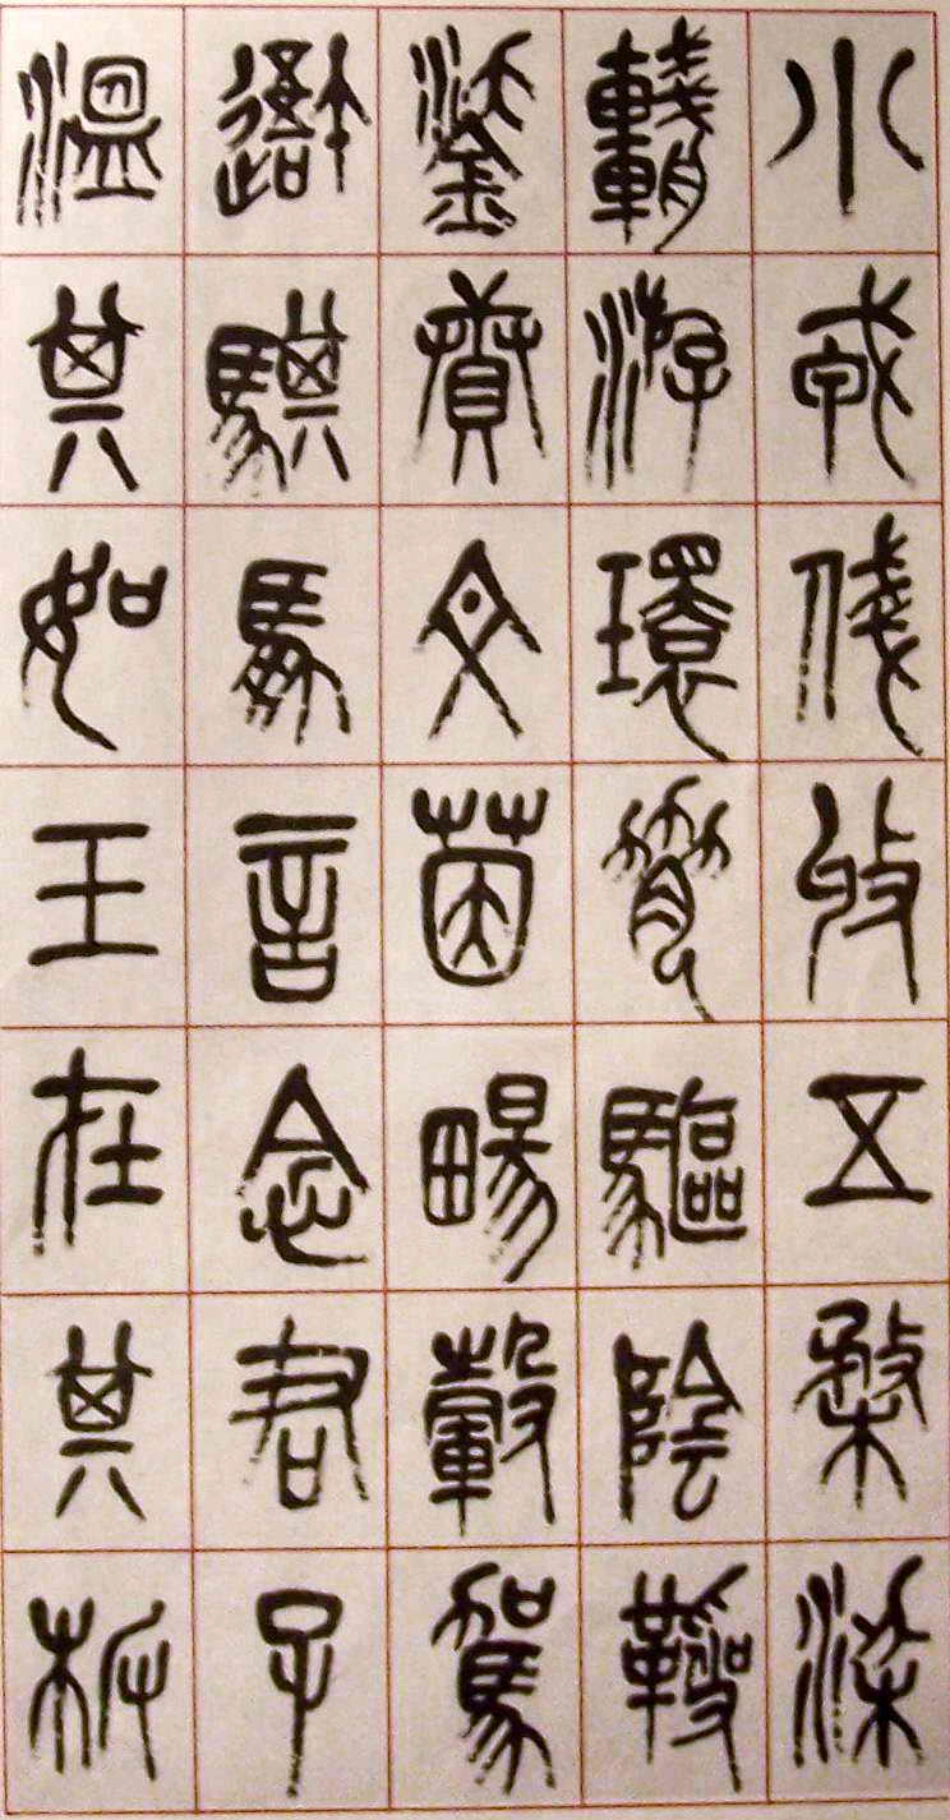 小戎俴收五楘梁
輈游環脅驅陰靷
鋈續文茵暢轂駕
騏馵言念君子
溫其如玉在其板